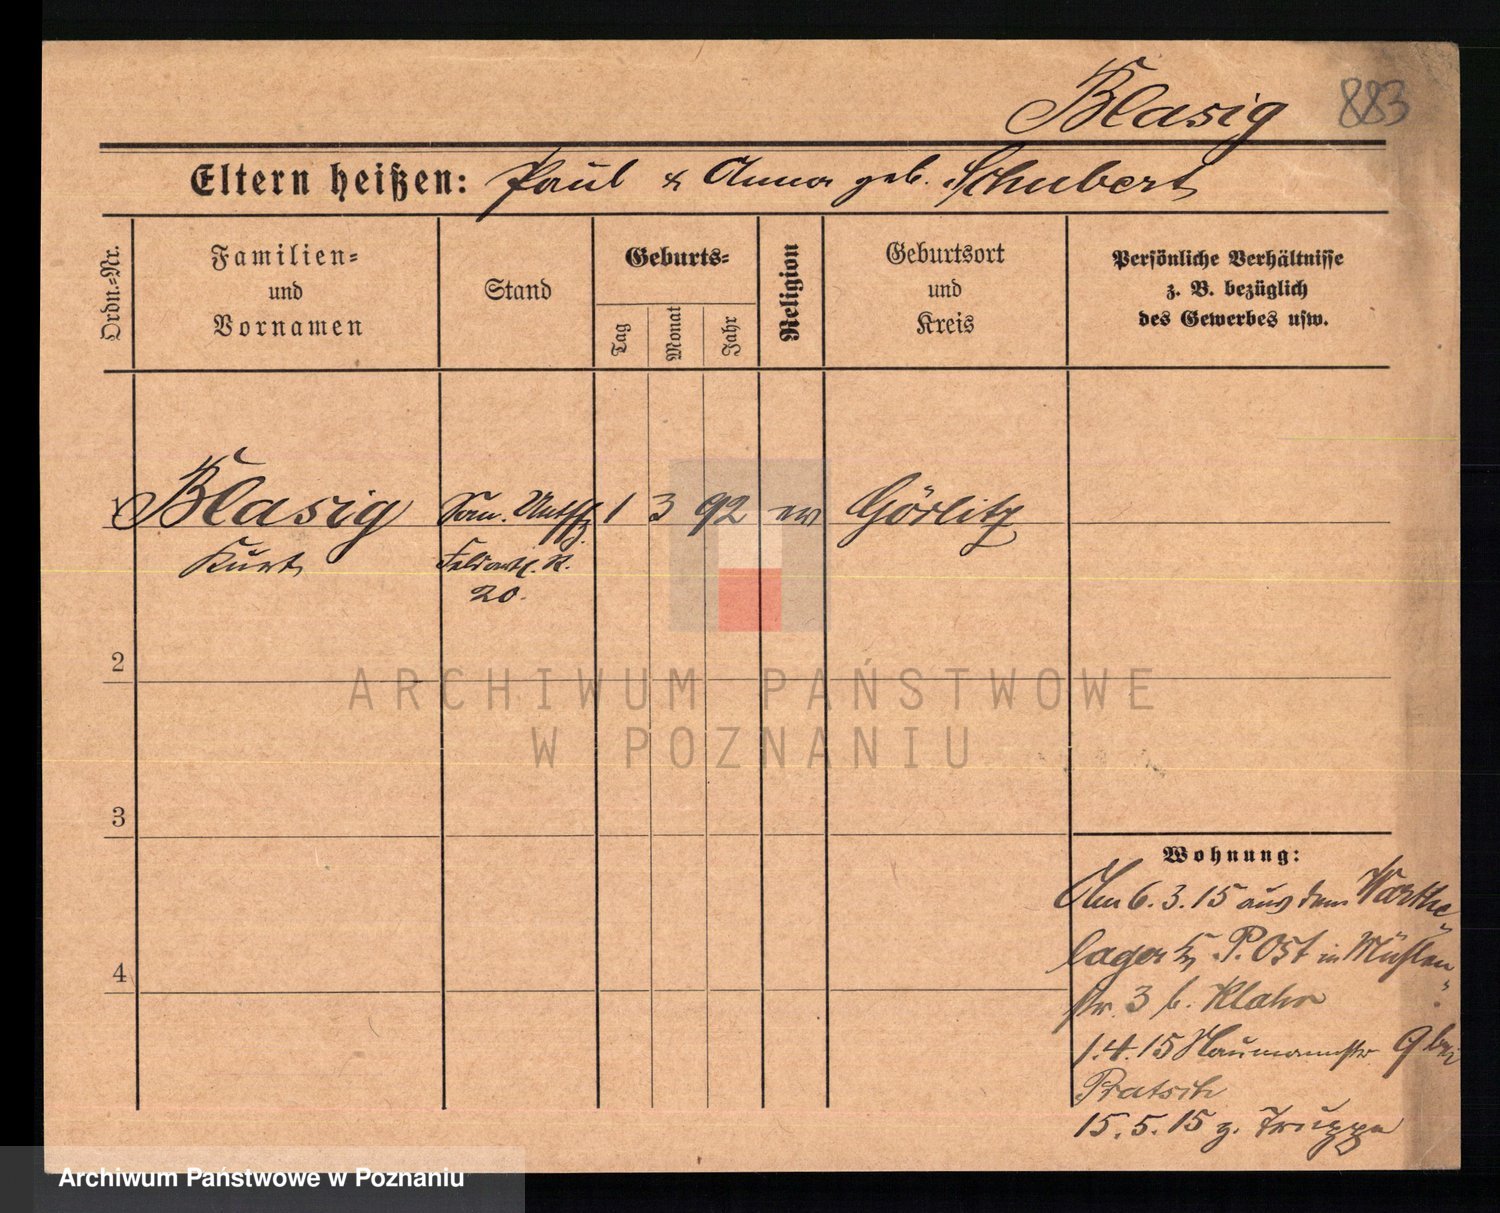 Blasig 883
Eltern heißen: Paul & Anna geb. Schubert
Ordn.-Nr.
Familien-
und
Vornamen
Stand
Geburts-
Tag
Monat
Jahr
Religion
Geburtsort
und
Kreis
Persönliche Verhältnisse
z. B. bezüglich
des Gewerbes usw.
1 Blasig San. Untffz 1 3 92 ev Görlitz
Kurt Feldartl. R.
20.
2
ARCHIWUM PAŃSTWOWE
W POZNANIU
3
Wohnung:
Am 6.3.15 aus dem Warthe
lager P. Ost in Mühlen
str. 3 b. Klahr
1.4.15 Naumannstr. 9 bei
Pratsch
15.5.15 z. Truppe
4
Archiwum Państwowe w Poznaniu